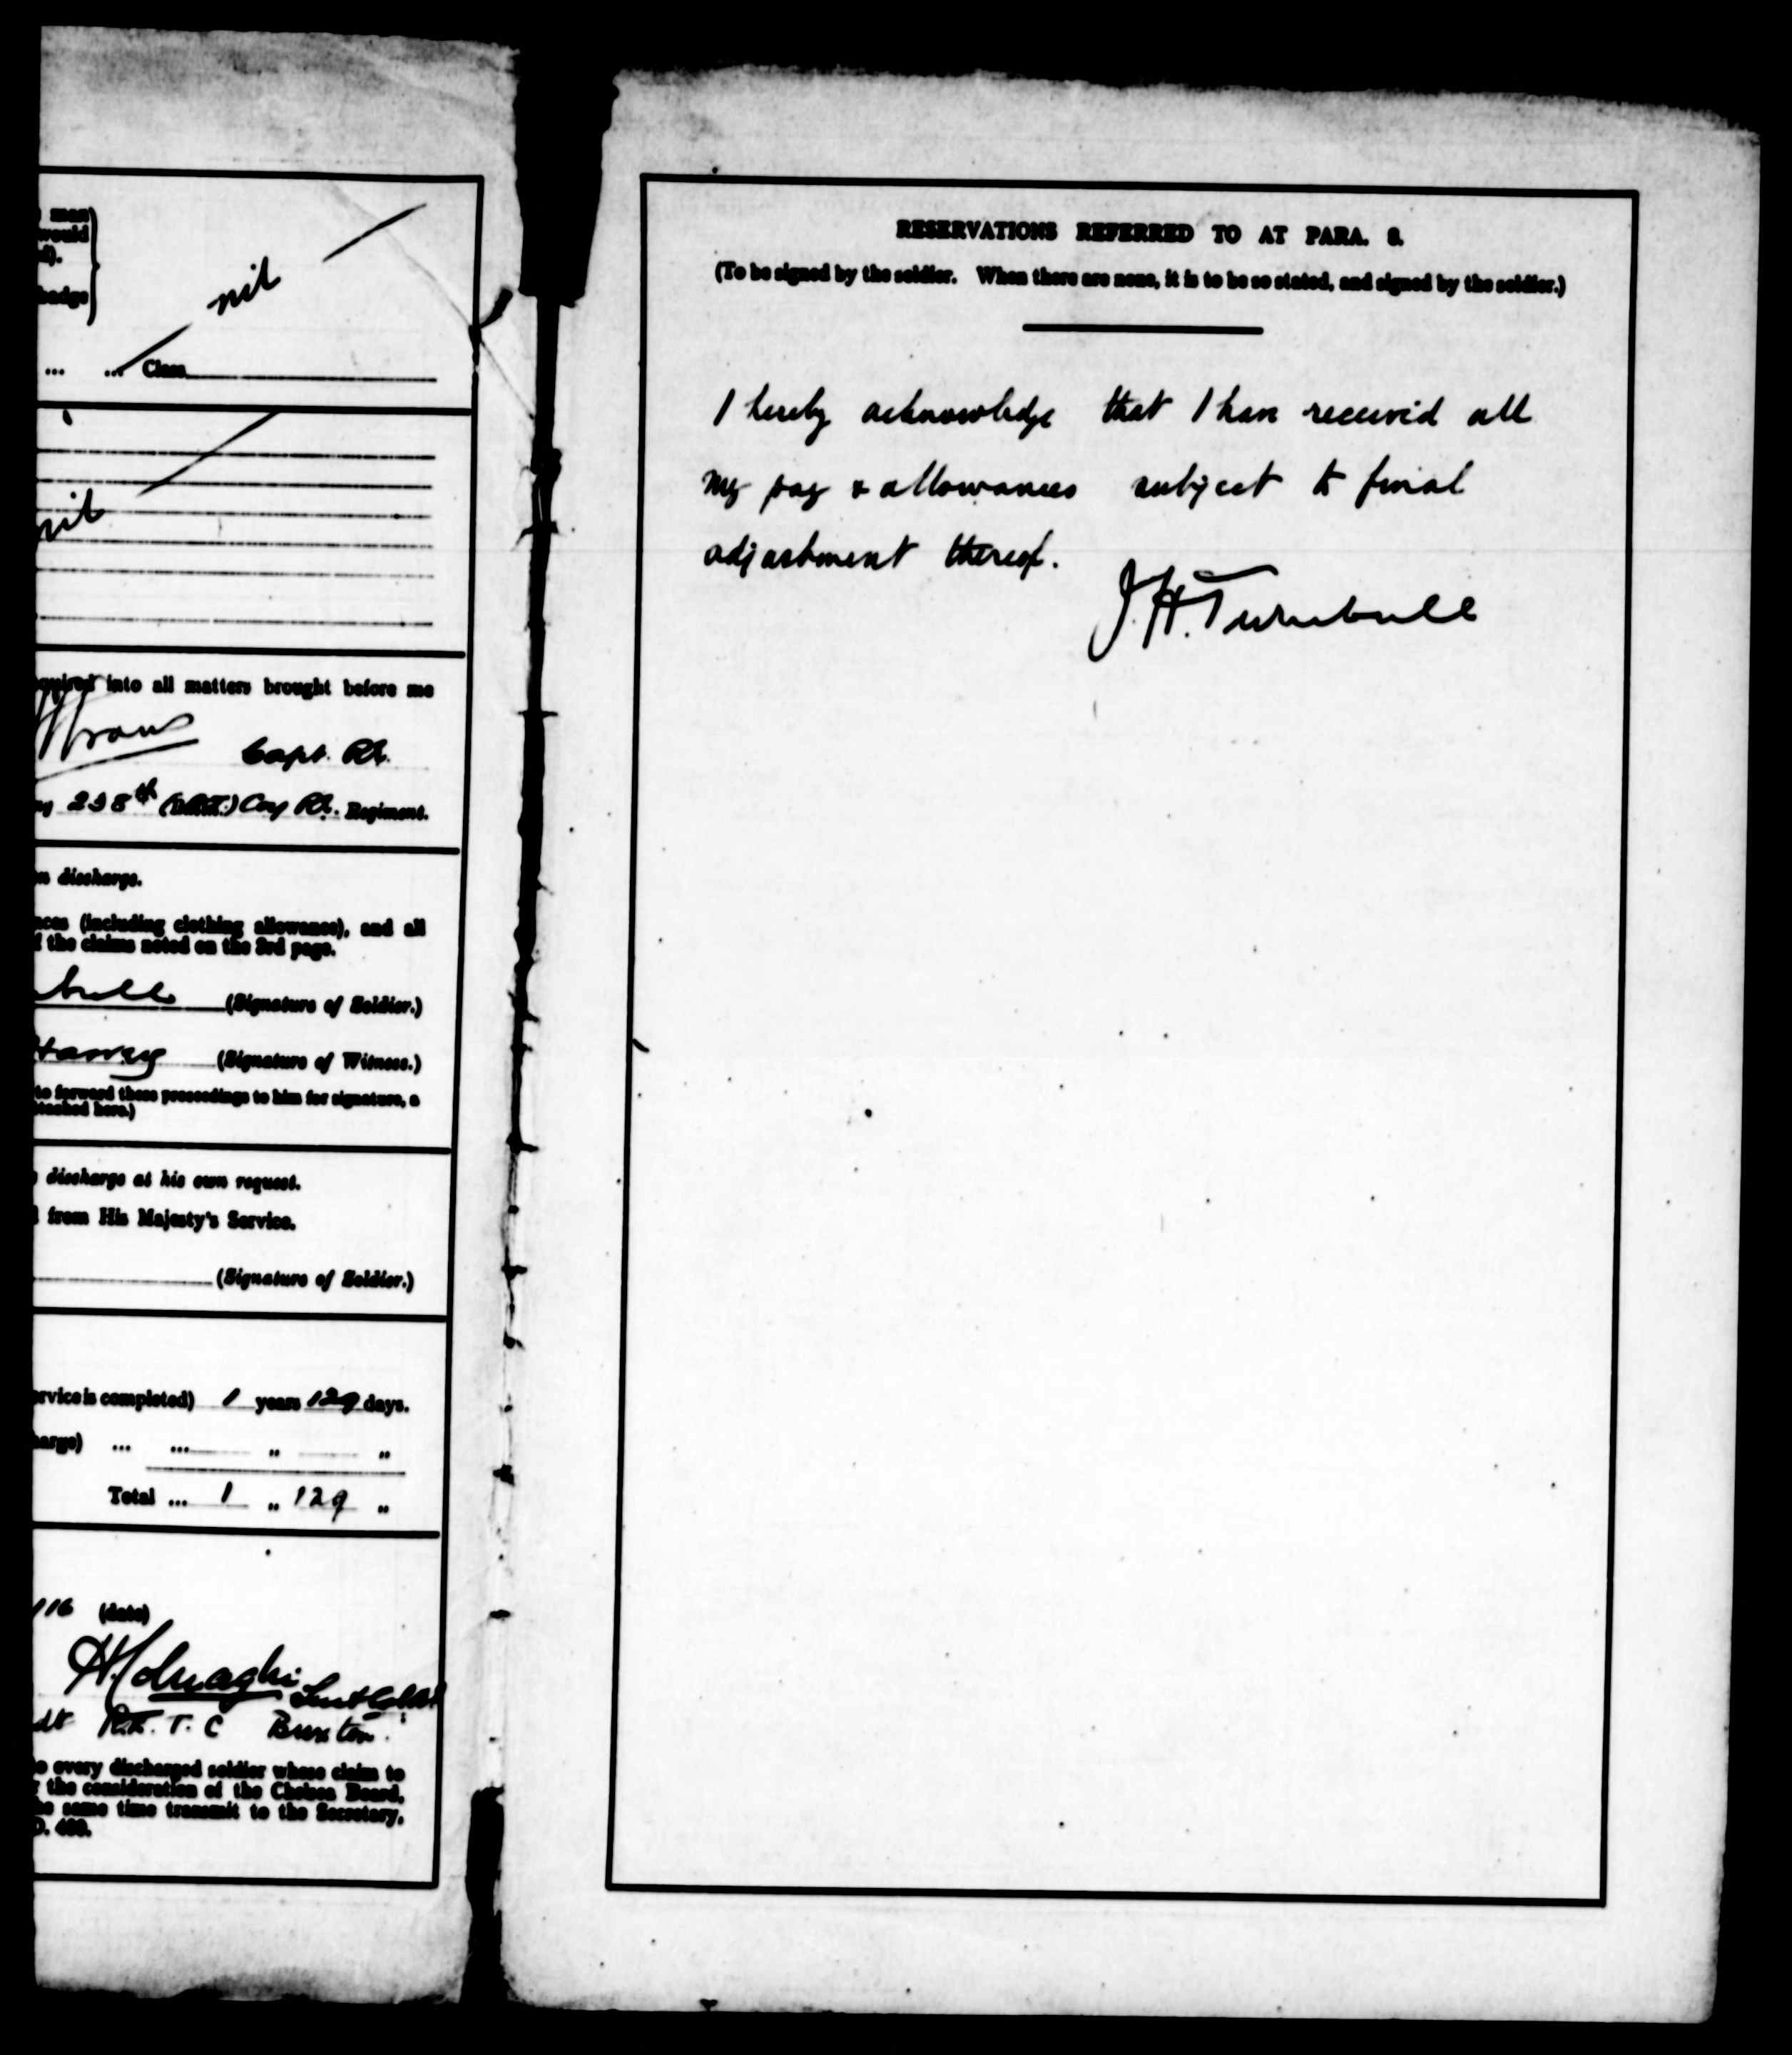 man
would
nil
badge
... ... Class
nil
into all matters brought before me
Capt. RE.
Coy RE. Regiment.
discharge.
(including clothing allowance), and all
the claims noted on the 3rd page.
(Signature of Soldier.)
Harvey (Signature of Witness.)
to forward these proceedings to him for signature, a
here.)
discharge at his own request.
from His Majesty's Service.
(Signature of Soldier.)
service is completed) 1 years 129 days.
... ... " "
Total ... 1 " 129 "
(date)
R.E. T. C Buxton.
every discharged soldier whose claim to
the consideration of the Chelsea Board,
same time transmit to the Secretary,
RESERVATIONS REFERRED TO AT PARA. 8.
(To be signed by the soldier. When there are none, it is to be so stated, and signed by the soldier.)
I hereby acknowledge that I have received all
my pay & allowances subject to final
adjustment thereof.
J. H. Turnbull